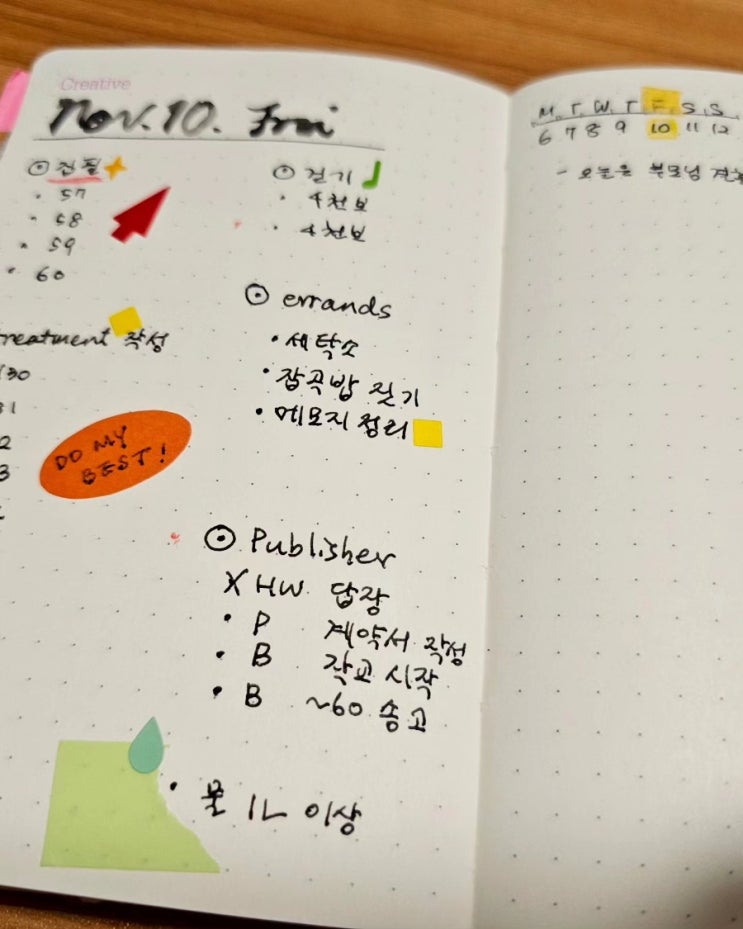 Creative
Nov. 10. Fri
⊙ 집필
· 57
· 58
· 59
· 60
treatment 작성
30
DO MY
BEST!
⊙ 걷기
· 4천보
· 4천보
⊙ errands
· 세탁소
· 잡곡밥 짓기
· 메모지 정리
⊙ Publisher
X HW 답장
· P 계약서 작성
· B 각교 시작
· B ~60 송고
· 물 1L 이상
M. T. W. T F. S. S.
6 7 8 9 10 11 12
- 오늘은 부모님